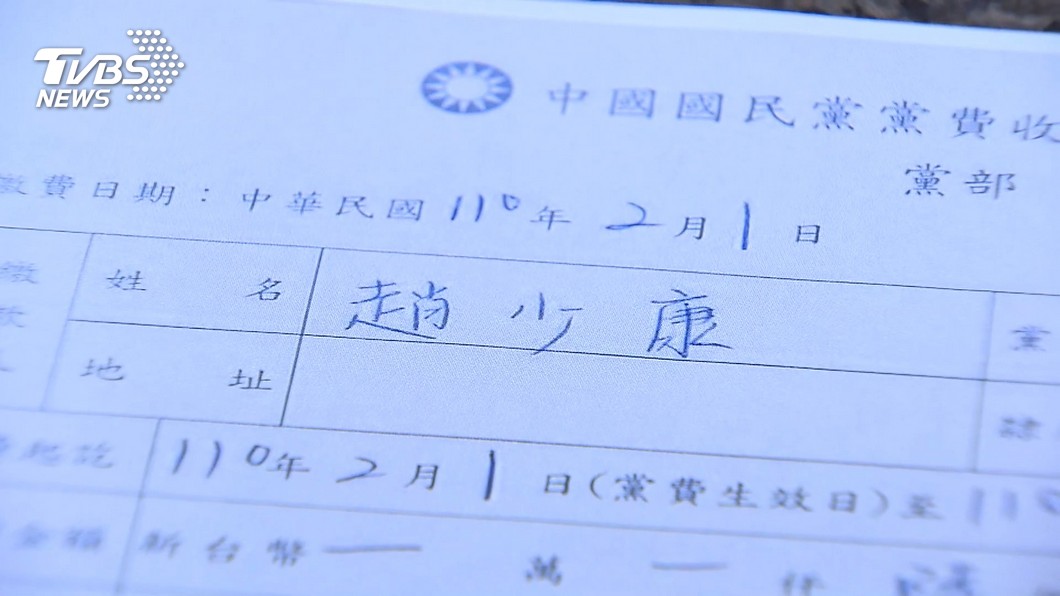 TVBS
NEWS
中國國民黨黨費收
黨部
繳費日期：中華民國110年2月1日
繳
款
姓名 趙少康 黨
地址
起訖 110年2月1日(黨費生效日)至110
金額 新台幣一萬一仟